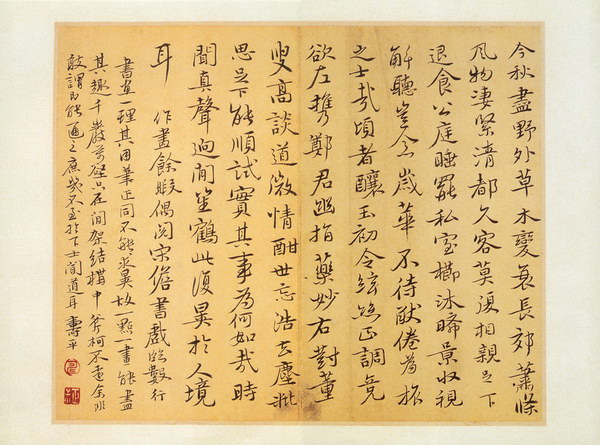 今秋盡野外草木變衰長郊蕭條
風物淒緊清都久客莫復相親足下
退食公庭睡罷私室櫛沐晞景收視
解聽豈念歲華不待猷倦為旅
之士哉頃者釀玉初令絲正調竟
欲左携鄭君幽指藥妙右對董
叟高談道微情酣世忘浩去塵
思足下能順試實其事為何如哉時
聞真聲迥聞笙鶴此復異於人境
耳 作畫餘暇偶閱宋儋書戲臨數行
書畫一理其用筆正同不能求異故一點一畫能盡
其趣千巖萬壑只在間架結構中斧柯不遠余非
敢謂即能通之庶幾不至於下士聞道耳 壽平